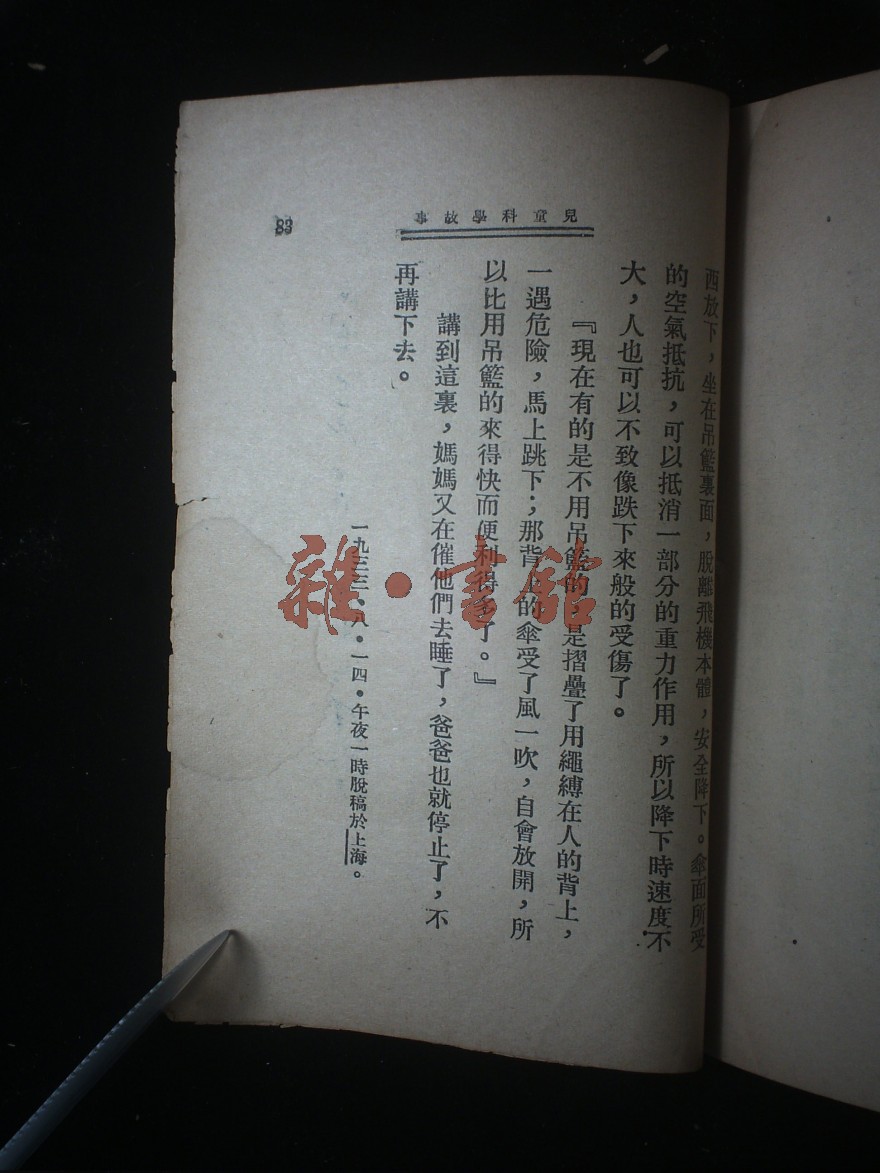 兒童科學故事
83
西放下，坐在吊籃裏面，脫離飛機本體，安全降下。傘面所受
的空氣抵抗，可以抵消一部分的重力作用，所以降下時速度不
大，人也可以不致像跌下來般的受傷了。
『現在有的是不用吊籃的，是摺疊了用繩縛在人的背上，
一遇危險，馬上跳下；那背上的傘受了風一吹，自會放開，所
以比用吊籃的來得快而便利得多了。』
講到這裏，媽媽又在催他們去睡了，爸爸也就停止了，不
再講下去。
一九三三・八・一四・午夜一時脫稿於上海。
雜・書館